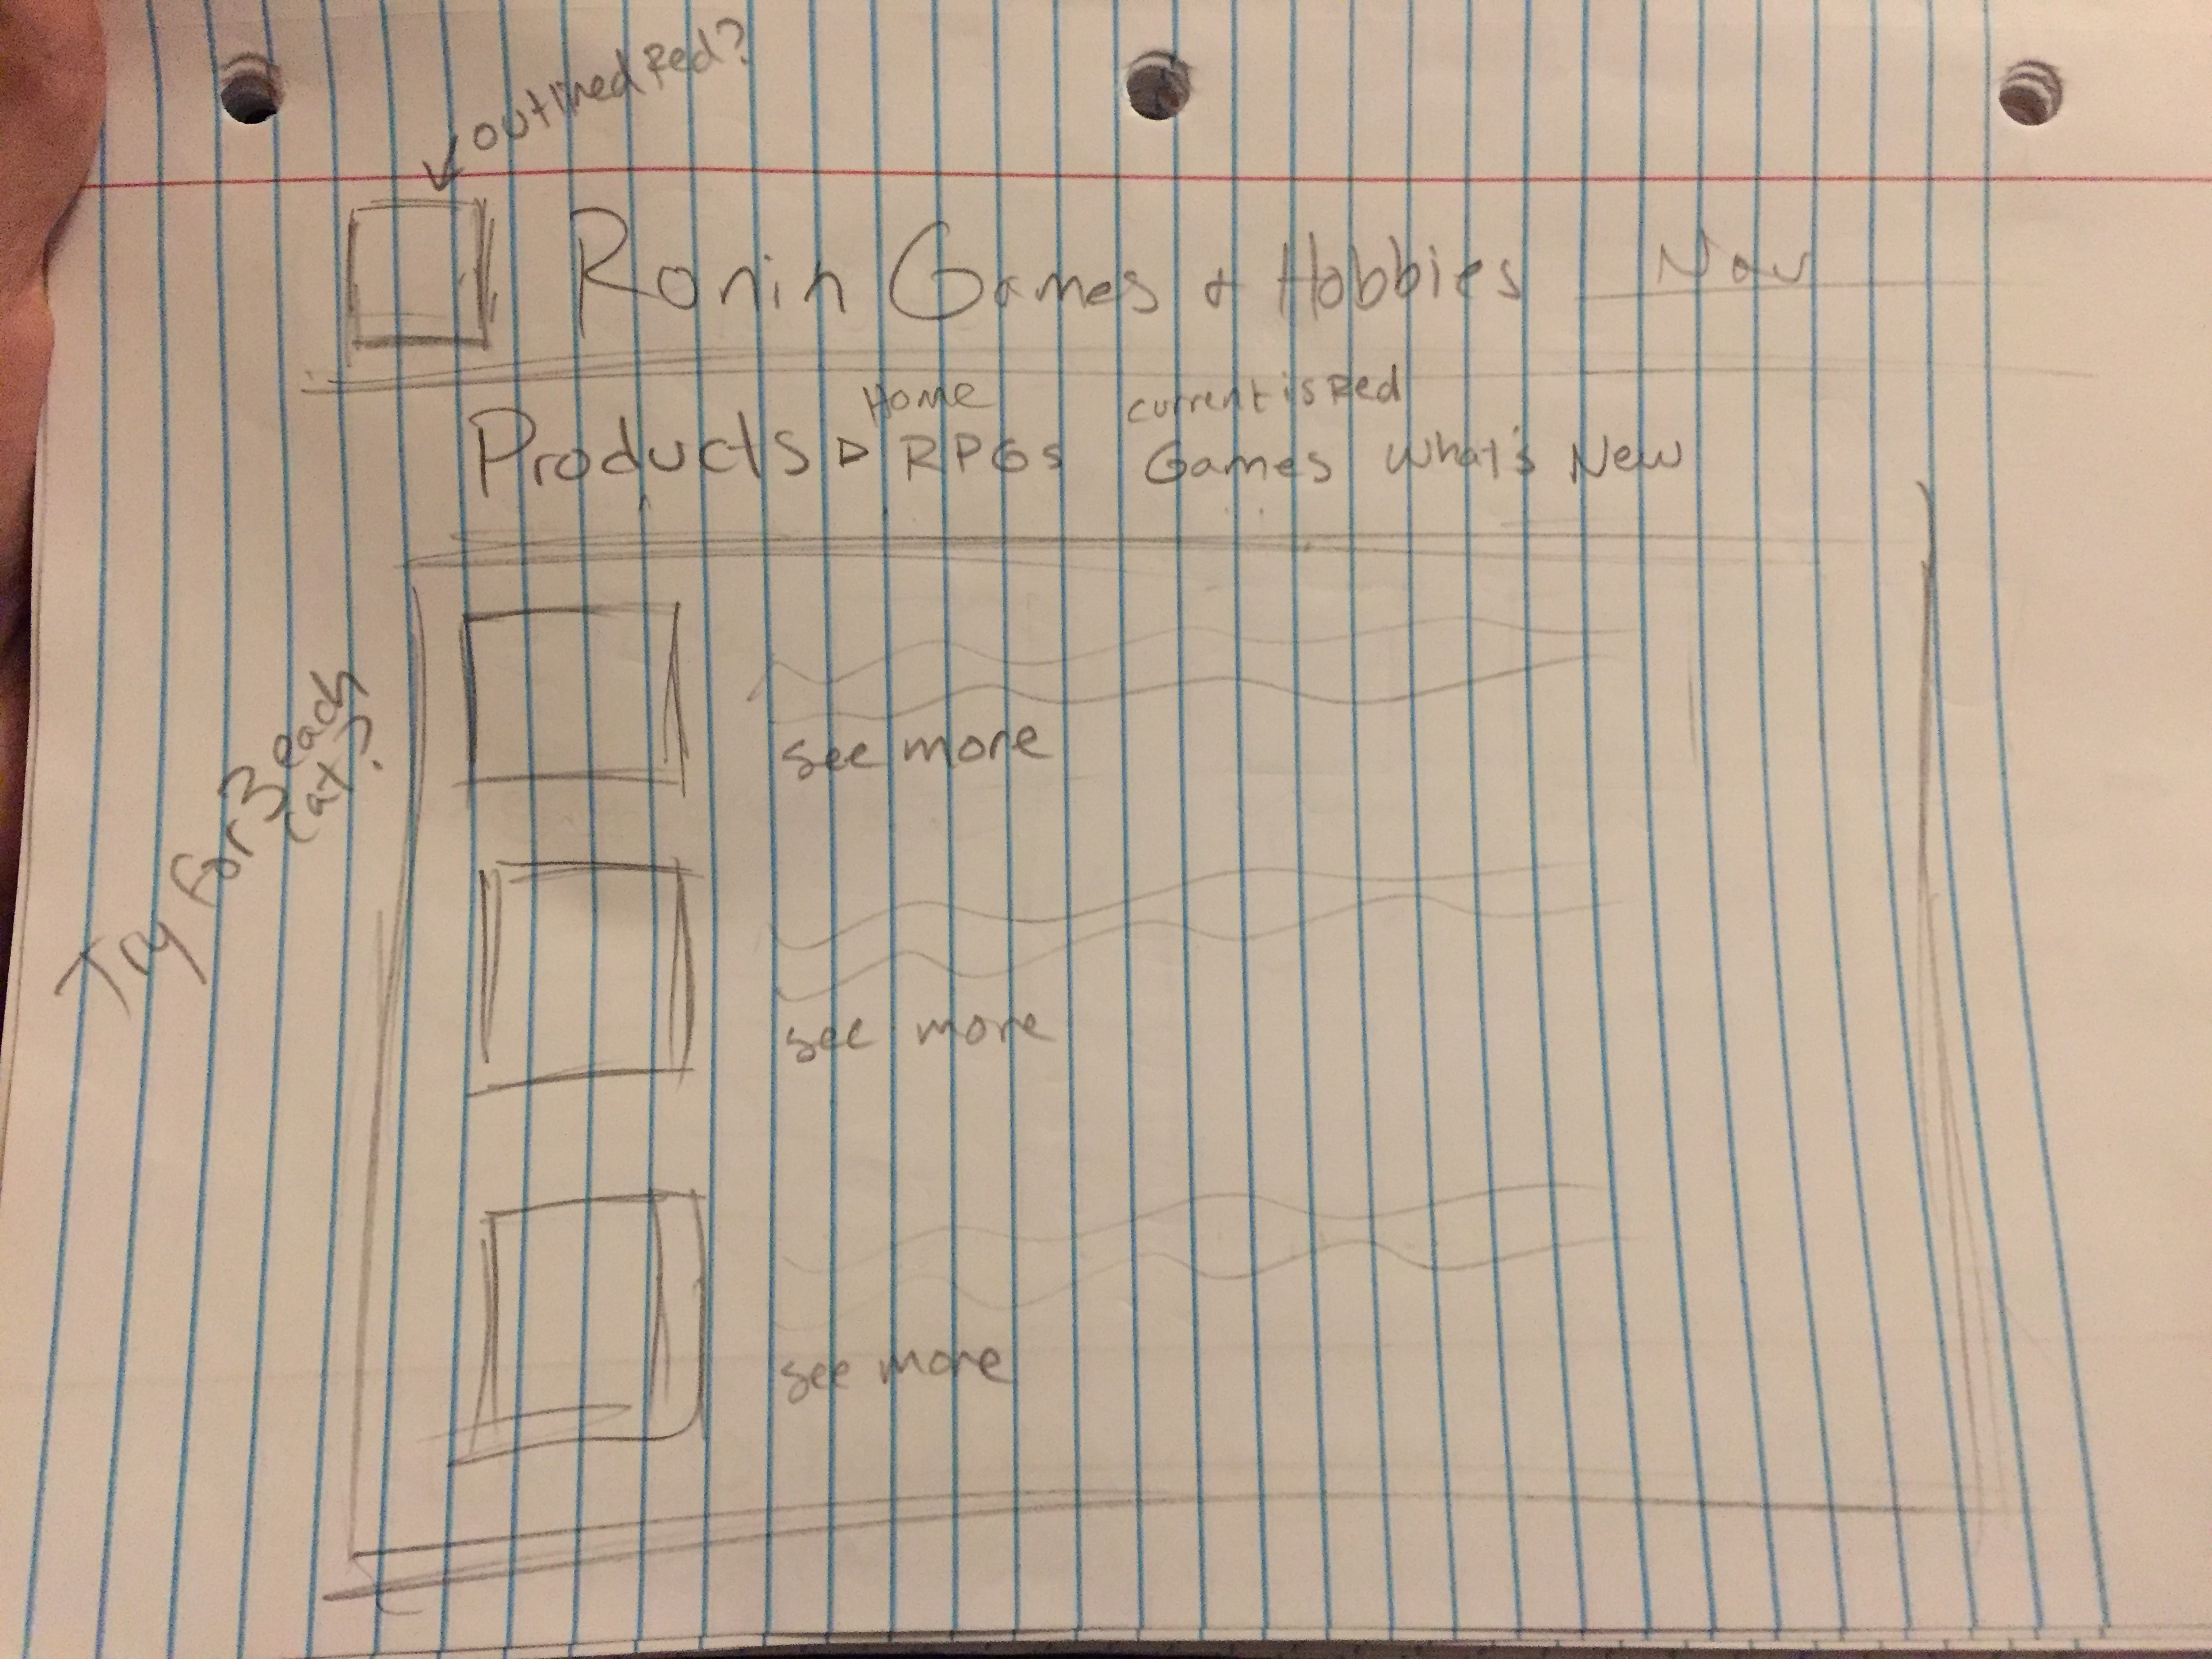 outlined Red?
Ronin Games & Hobbies Nav
Home current is Red
Products ▷ RPGs Games What's New
Try for 3 each
cat?
see more
see more
see more